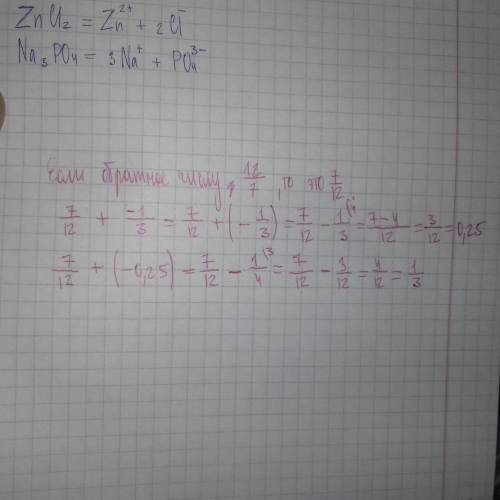 ZnCl₂ = Zn²⁺ + 2Cl⁻
Na₃PO₄ = 3Na⁺ + PO₄³⁻
Если обратное числу 12/7, то это 7/12
7/12 + -1/3 = 7/12 + (-1/3) = 7/12 - 1/3 (4 = 7-4/12 = 3/12 = 0,25
7/12 + (-0,25) = 7/12 - 1/4 (3 = 7/12 - 3/12 = 4/12 = 1/3